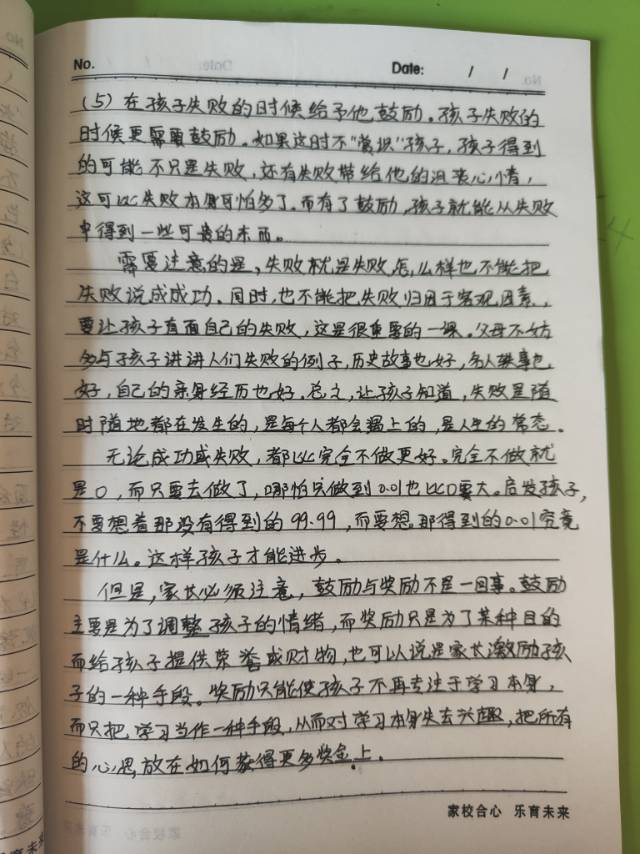 No.
Date: / /
(5)在孩子失败的时候给予他鼓励。孩子失败的
时候更需要鼓励。如果这时不“赏识”孩子,孩子得到
的可能不只是失败,还有失败带给他的沮丧心情,
这可比失败本身可怕多了。而有了鼓励,孩子就能从失败
中得到一些可贵的东西。
需要注意的是,失败就是失败,怎么样也不能把
失败说成成功。同时,也不能把失败归因于客观因素,
要让孩子直面自己的失败,这是很重要的一课。父母不妨
多与孩子讲讲人们失败的例子,历史故事也好,名人轶事也
好,自己的亲身经历也好。总之,让孩子知道,失败是随
时随地都在发生的,是每个人都会遇上的,是人生的常态。
无论成功或失败,都比完全不做更好。完全不做就
是0,而只要去做了,哪怕只做到0.01也比0要大。启发孩子,
不要想着那没有得到的99.99,而要想那得到的0.01究竟
是什么。这样孩子才能进步。
但是,家长必须注意,鼓励与奖励不是一回事。鼓励
主要是为了调整孩子的情绪,而奖励只是为了某种目的
而给孩子提供荣誉或财物,也可以说是家长激励孩
子的一种手段。奖励只能使孩子不再专注于学习本身,
而只把学习当作一种手段,从而对学习本身失去兴趣,把所有
的心思放在如何获得更多奖金上。
家校合心 乐育未来